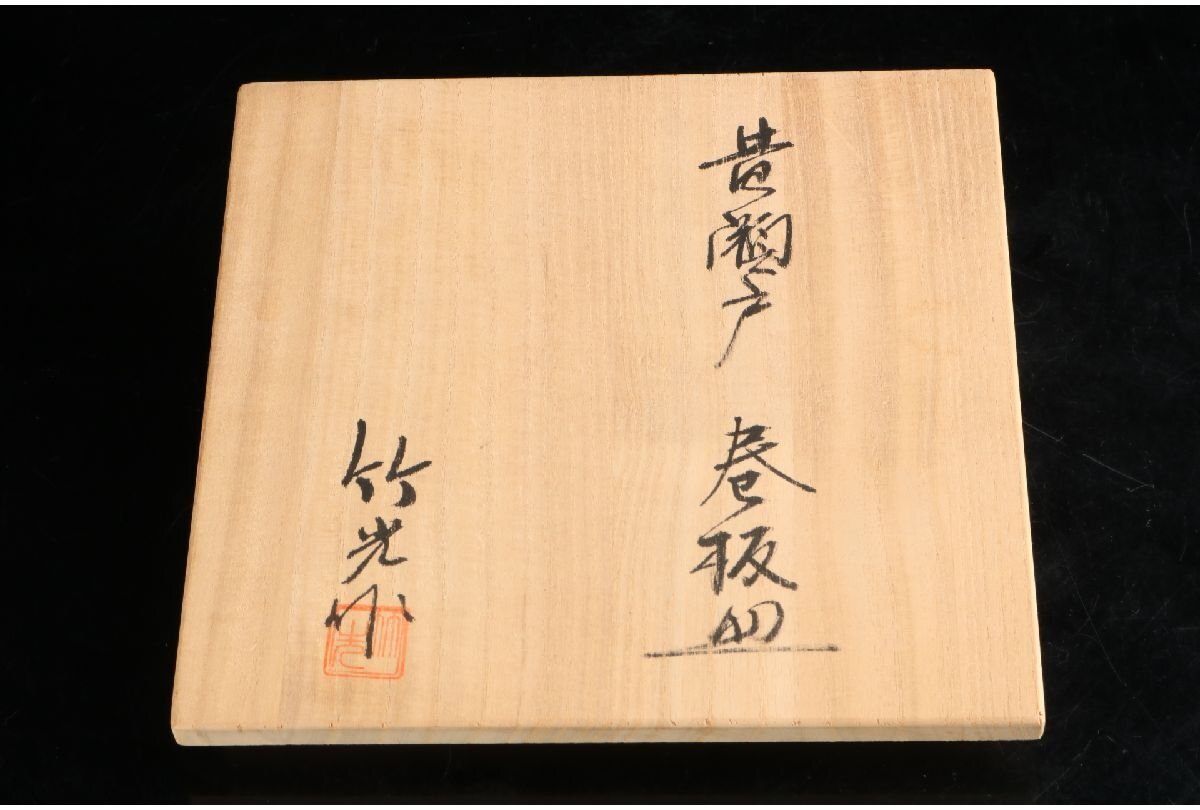 黄瀬戸 巻板皿
竹光作